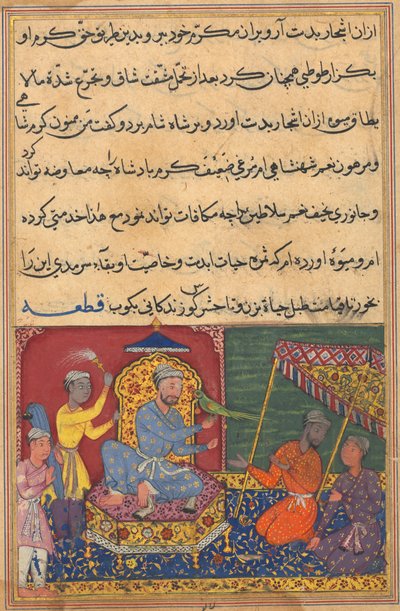 ازان اشجار بدست آر و بران مکرم خود ببر و بدین طریق حق کرم او
بگزار طوطی همچنان کرد بعد از تحمل مشقت شاق و تجرع شدة مالا
یطاق میوه ازان اشجار بدست اورد و بر شاه شام برد و گفت من ممنون کرم شاهی
و مرهون نعم شهنشاهی ام مرغی ضعیف کرم بادشاه را چه معاوضه تواند کرد
و جانوری نحیف نعم سلاطین را چه مکافات تواند نمود مع هذا خدمتی کرده
ام و میوۀ اورده ام که ثمره حیات ابدست و بقاء سرمدی این را
بخور تا قیامت طبل حیاة بزن و تا حشر کوس زندکانی بکوب قطعه